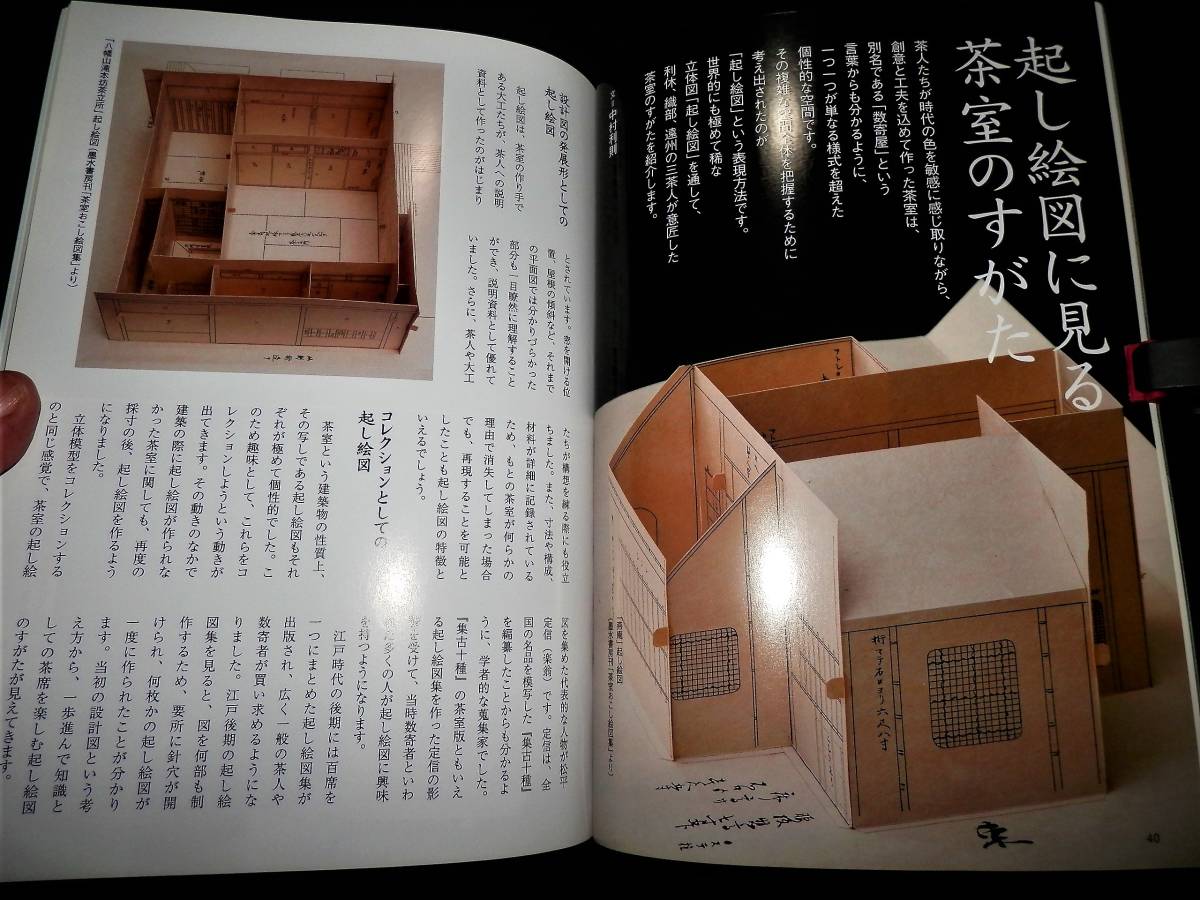 起し絵図に見る
茶室のすがた
茶人たちが時代の色を敏感に感じ取りながら、
創意と工夫を込めて作った茶室は、
別名である「数寄屋」という
言葉からも分かるように、
一つ一つが単なる様式を超えた
個性的な空間です。
その複雑な空間全体を把握するために
考え出されたのが
「起し絵図」という表現方法です。
世界的にも極めて稀な
立体図「起し絵図」を通して、
利休、織部、遠州の三茶人が意匠した
茶室のすがたを紹介します。
文＝中村利則
「燕庵」起し絵図
(墨水書房刊『茶室おこし絵図集』より)
桁マテ石ヨリ六尺八寸
40
設計図の発展形としての
起し絵図
起し絵図は、茶室の作り手で
ある大工たちが、茶人への説明
資料として作ったのがはじまり
とされています。窓を開ける位
置、屋根の傾斜など、それまで
の平面図では分かりづらかった
部分も一目瞭然に理解すること
ができ、説明資料として優れて
いました。さらに、茶人や大工
たちが構想を練る際にも役立
ちました。また、寸法や構成、
材料が詳細に記録されている
ため、もとの茶室が何らかの
理由で消失してしまった場合
でも、再現することを可能と
したことも起し絵図の特徴と
いえるでしょう。
コレクションとしての
起し絵図
茶室という建築物の性質上、
その写しである起し絵図もそれ
ぞれが極めて個性的でした。こ
のため趣味として、これらをコ
レクションしようという動きが
出てきます。その動きのなかで
建築の際に起し絵図が作られな
かった茶室に関しても、再度の
採寸の後、起し絵図を作るよう
になりました。
立体模型をコレクションする
のと同じ感覚で、茶室の起し絵
図を集めた代表的な人物が松平
定信(楽翁)です。定信は、全
国の名品を模写した『集古十種』
を編纂したことからも分かるよ
うに、学者的な蒐集家でした。
『集古十種』の茶室版ともいえ
る起し絵図集を作った定信の影
響を受けて、当時数寄者といわ
れた多くの人が起し絵図に興味
を持つようになります。
江戸時代の後期には百席を
一つにまとめた起し絵図集が
出版され、広く一般の茶人や
数寄者が買い求めるようにな
りました。江戸後期の起し絵
図集を見ると、図を何部も制
作するため、要所に針穴が開
けられ、何枚かの起し絵図が
一度に作られたことが分かり
ます。当初の設計図という考
え方から、一歩進んで知識と
しての茶席を楽しむ起し絵図
のすがたが見えてきます。
「八幡山滝本坊茶立所」起し絵図(墨水書房刊『茶室おこし絵図集』より)